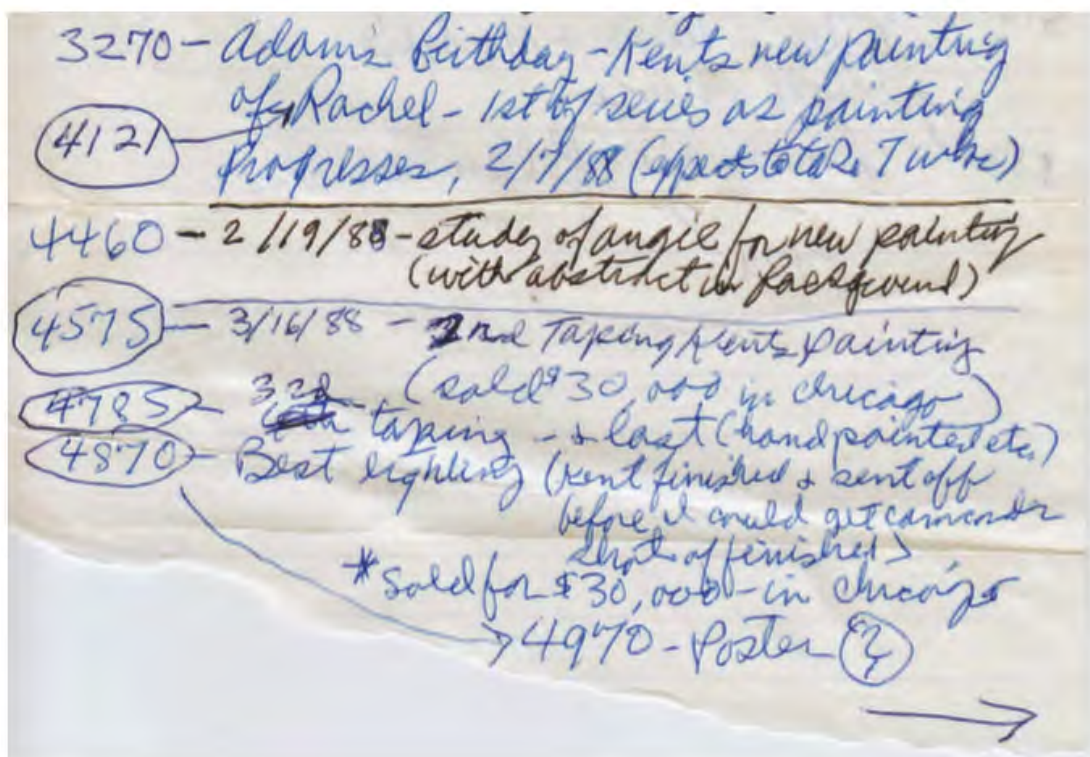 3270 - Adam's Birthday - Kent's new painting
of Rachel - 1st of series as painting
4121
progresses, 2/7/88 (expects to take 7 wks)
4460 - 2/19/88 - study of angie for new painting
(with abstract in background)
4575 - 3/16/88 - 2nd Taping Kent's painting
(sold $30,000 in chicago)
4785 - 3rd taping - & last (hand painted etc.)
4870 - Best lighting (Kent finished & sent off
before I could get camcorder
shot of finished)
* sold for $30,000 - in chicago
4970 - Poster ?